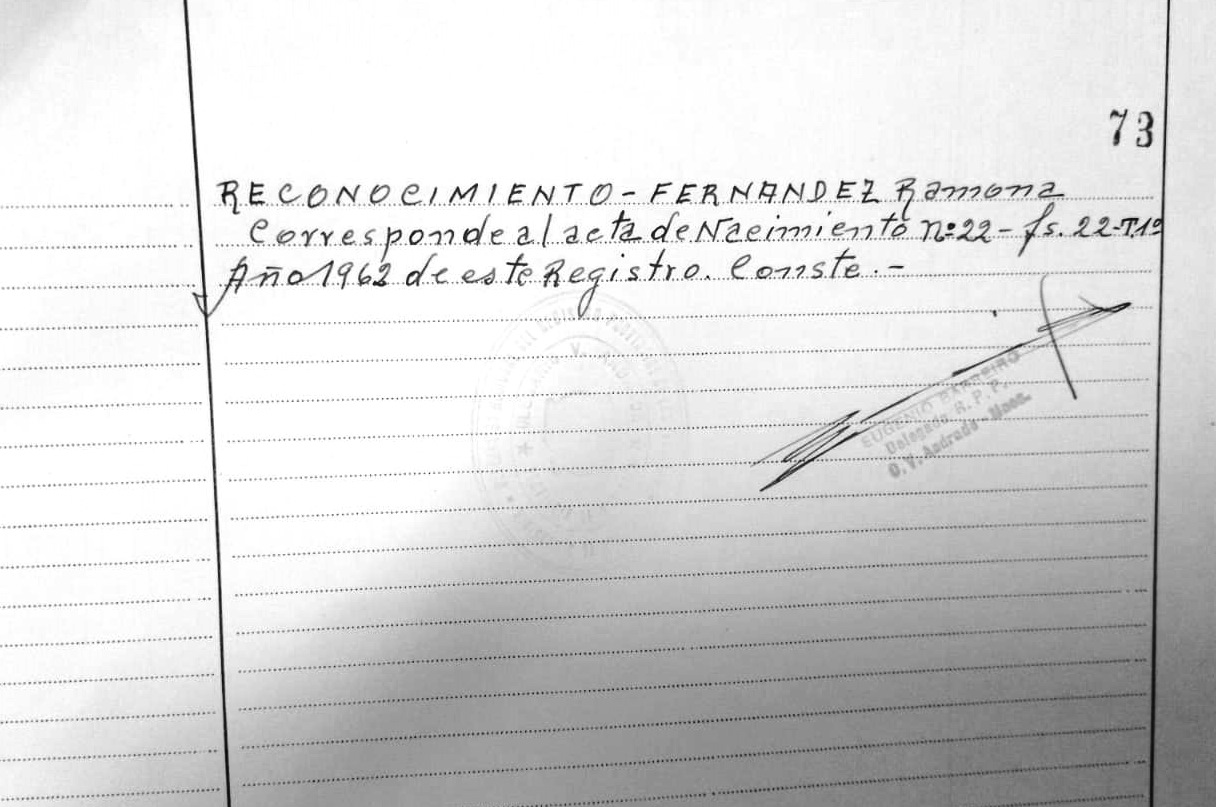 73
RECONOCIMIENTO - FERNANDEZ Ramona
Corresponde al acta de Nacimiento nº 22 - fs. 22 - T. 1º
Año 1962 de este Registro. Conste. -
EUGENIO BARREIRO
Delegado R. P. P.
O. V. Andrade - Mnes.